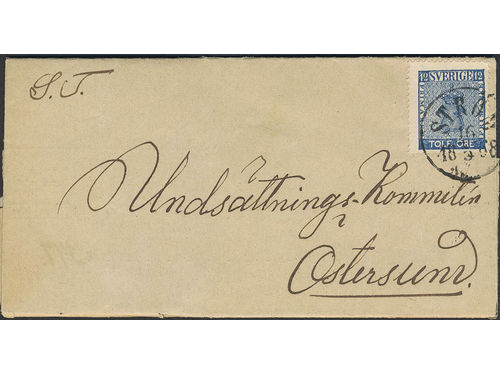 S.T.
12 SVERIGE 12
TOLF ÖRE
16
18 5 98
Undsättnings-Kommitén
i
Östersund.